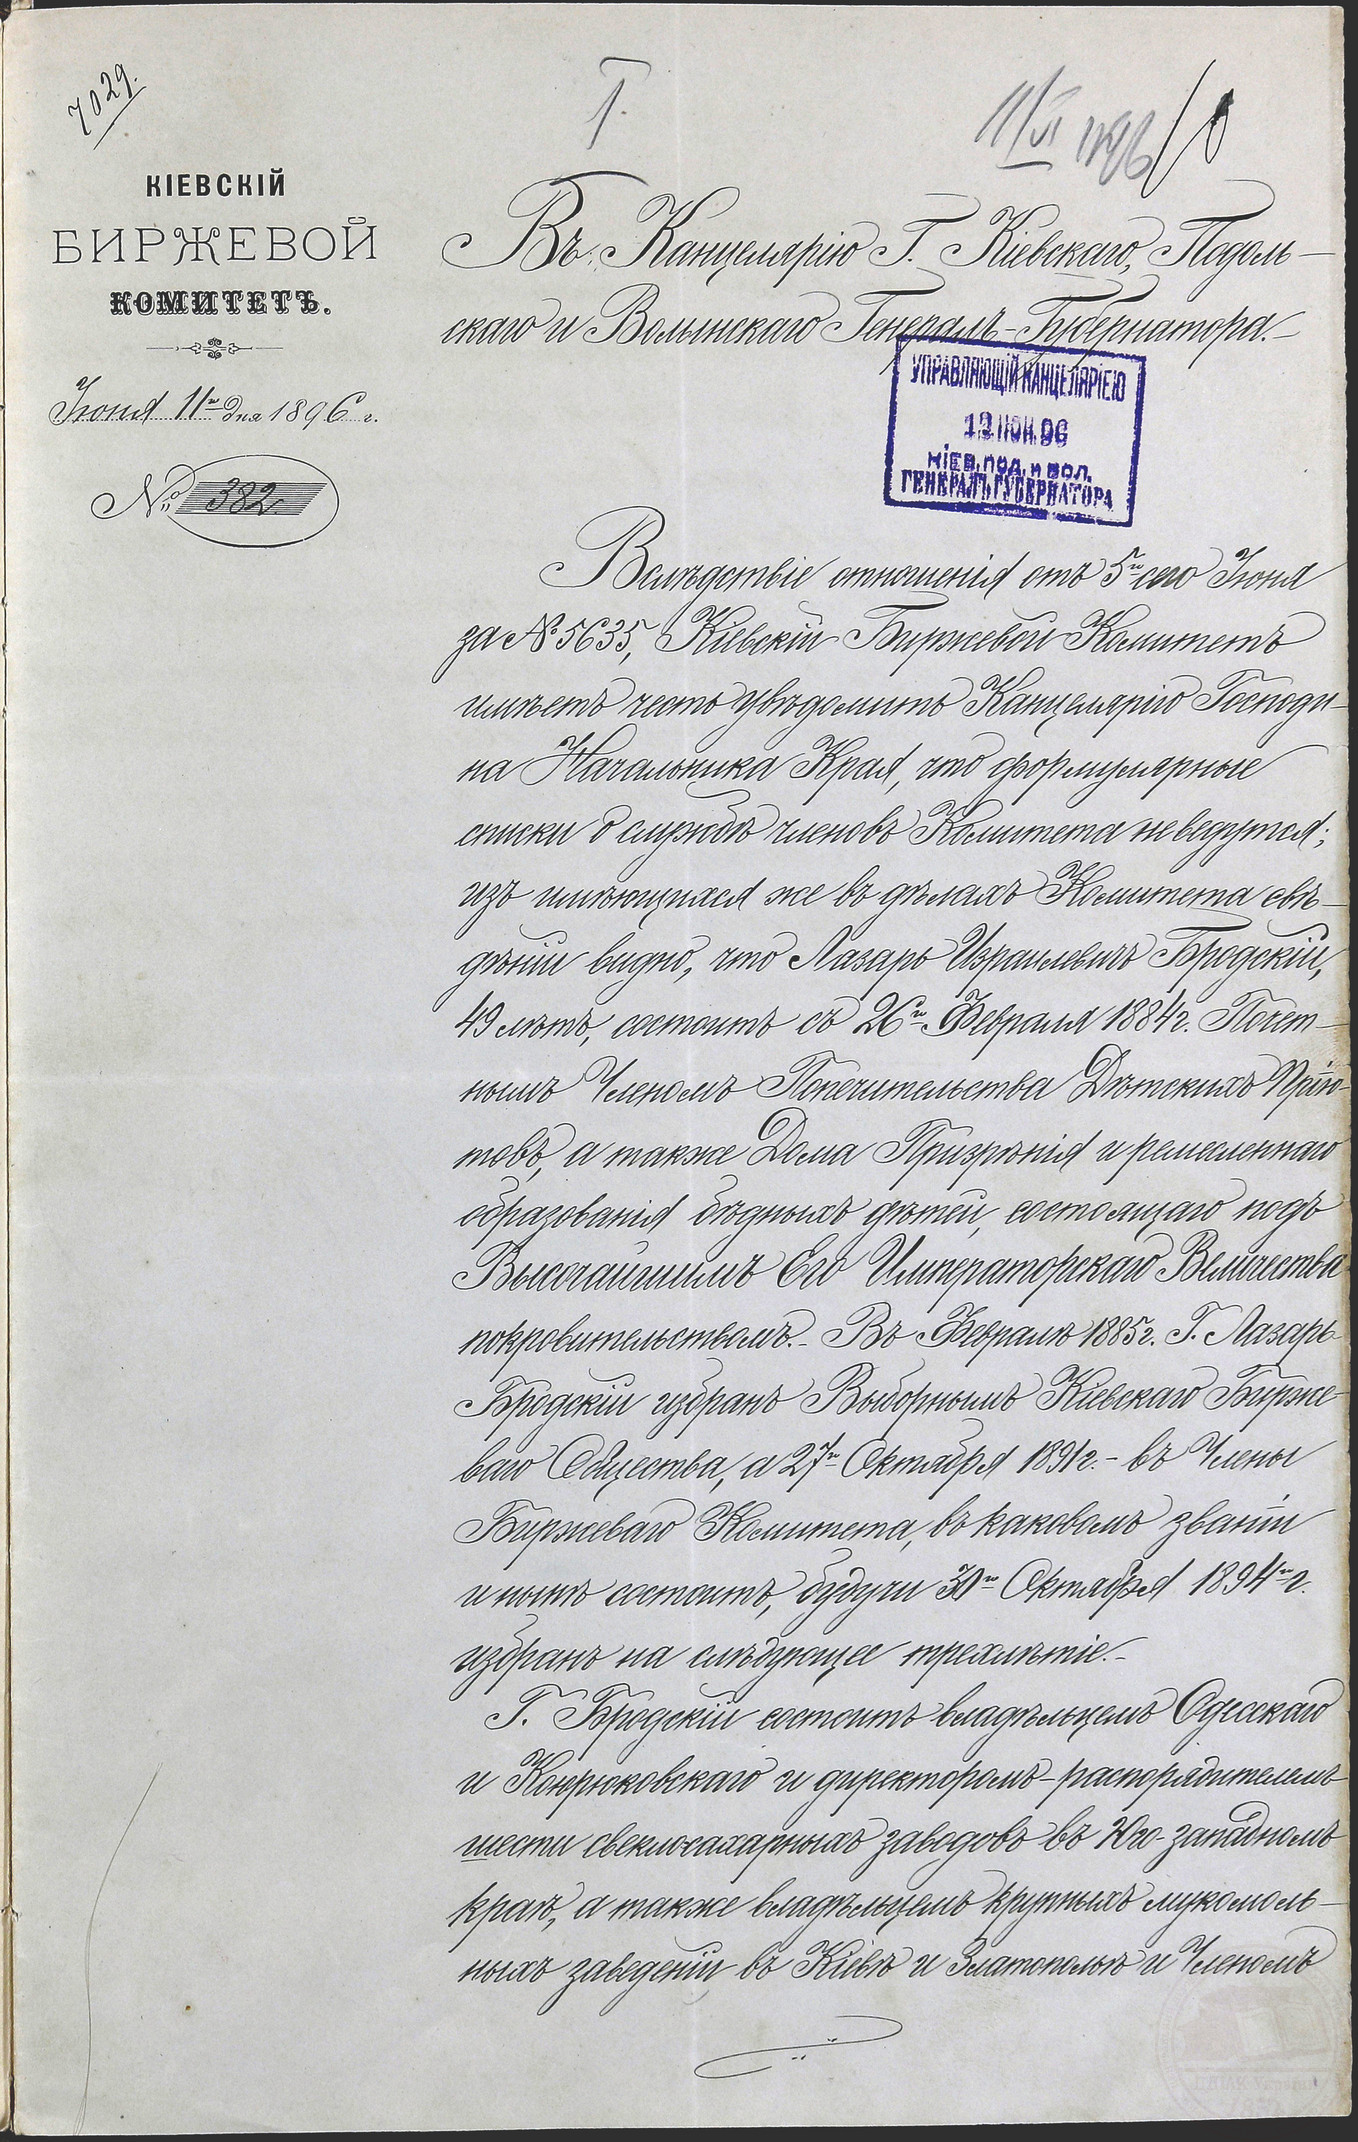 7029.
I.
11/VI 1896
КІЕВСКІЙ
БИРЖЕВОЙ
КОМИТЕТЪ.
Іюня 11го дня 1896 г.
№ 382.
Въ Канцелярію Г. Кіевскаго, Подоль-
скаго и Волынскаго Генералъ-Губернатора.-
УПРАВЛЯЮЩІЙ КАНЦЕЛЯРІЕЮ
12 ІЮН. 96
КІЕВ. ПОД. и ВОЛ.
ГЕНЕРАЛЪ ГУБЕРНАТОРА
Вслѣдствіе отношенія отъ 5го сего Іюня
за № 5635, Кіевскій Биржевой Комитетъ
имѣетъ честь увѣдомить Канцелярію Господи-
на Начальника Края, что формулярные
списки о службѣ членовъ Комитета не ведутся;
изъ имѣющихся же въ дѣлахъ Комитета свѣ-
дѣній видно, что Лазарь Израилевичъ Бродскій,
49 лѣтъ, состоитъ съ 26го Февраля 1884 г. Почет-
нымъ Членомъ Попечительства Дѣтскихъ Прію-
товъ, а также Дома Призрѣнія и ремесленнаго
образованія бѣдныхъ дѣтей, состоящаго подъ
Высочайшимъ Его Императорскаго Величества
покровительствомъ.- Въ Февралѣ 1885 г. Г. Лазарь
Бродскій избранъ Выборнымъ Кіевскаго Бирже-
ваго Общества, а 27го Октября 1891 г.- въ Члены
Биржеваго Комитета, въ каковомъ званіи
и нынѣ состоитъ, будучи 30го Октября 1894го г.
избранъ на слѣдующее трехлѣтіе.-
Г. Бродскій состоитъ владѣльцемъ Одесскаго
и Конрюковскаго и директоромъ-распорядителемъ
шести свеклосахарныхъ заводовъ въ Юго-западномъ
краѣ, а также владѣльцемъ крупныхъ мукомоль-
ныхъ заведеній въ Кіевѣ и Златополѣ и Членомъ